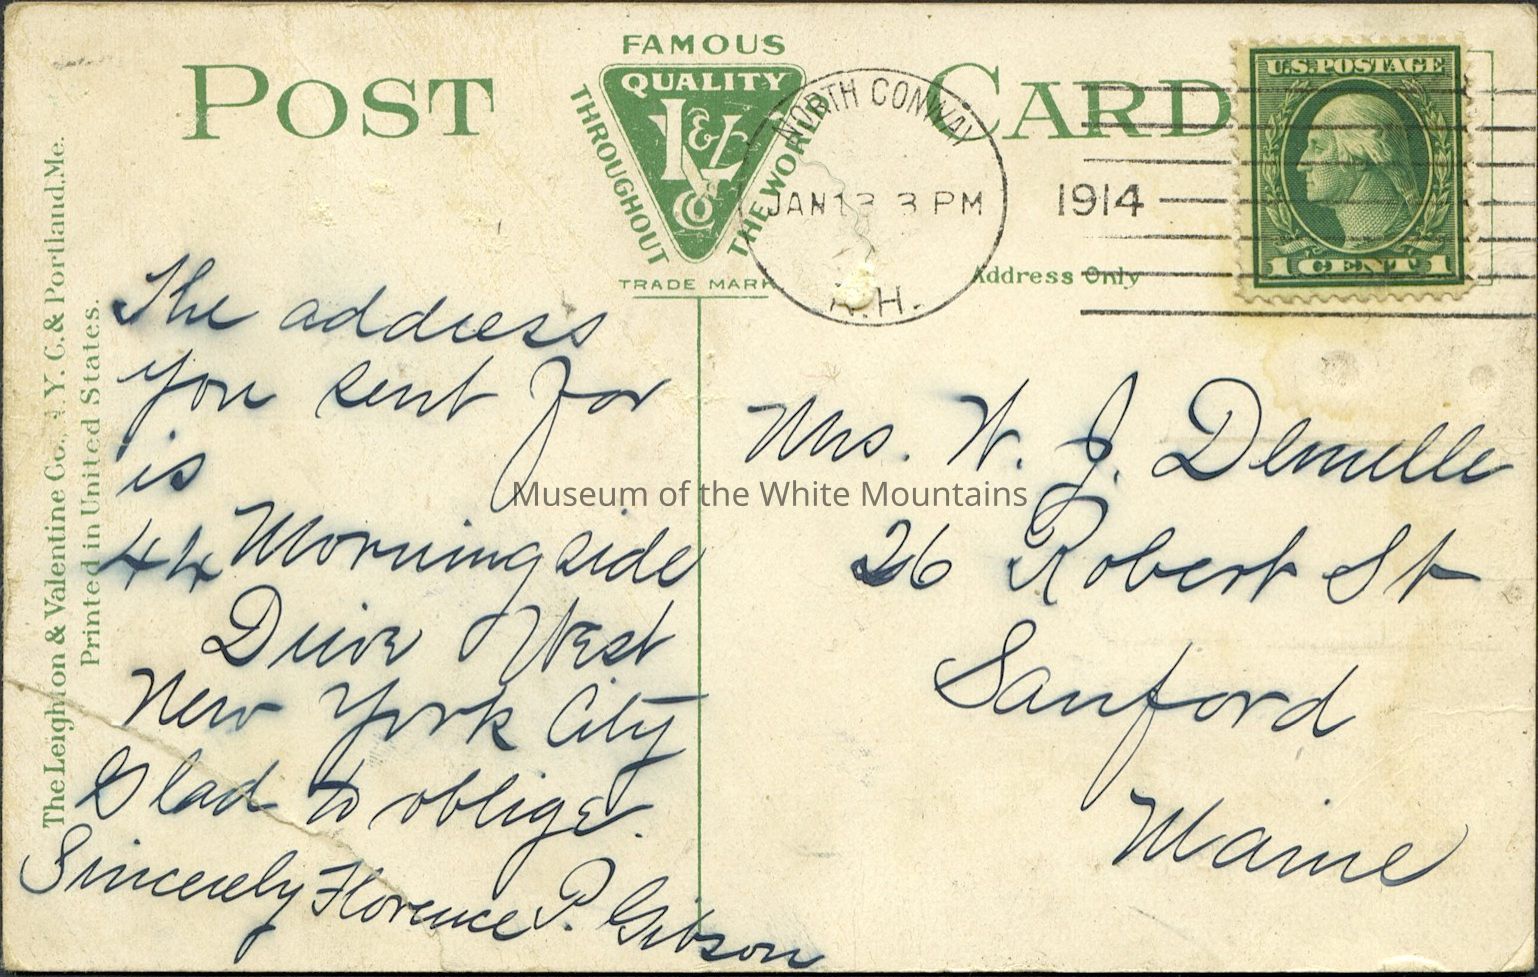 POST CARD
FAMOUS
QUALITY
L & V
Co
THROUGHOUT
THE WORLD
TRADE MARK
NORTH CONWAY
JAN 13 3 PM
N.H.
1914
U.S. POSTAGE
1 CENT 1
Address Only
The Leighton & Valentine Co., N.Y. C. & Portland. Me.
Printed in United States.
The address
you sent for
is
44 Morningside
Drive West
New York City
Glad to oblige.
Sincerely Florence P. Gibson
Mrs. W. J. Demelle
26 Robert St
Sanford
Maine
Museum of the White Mountains